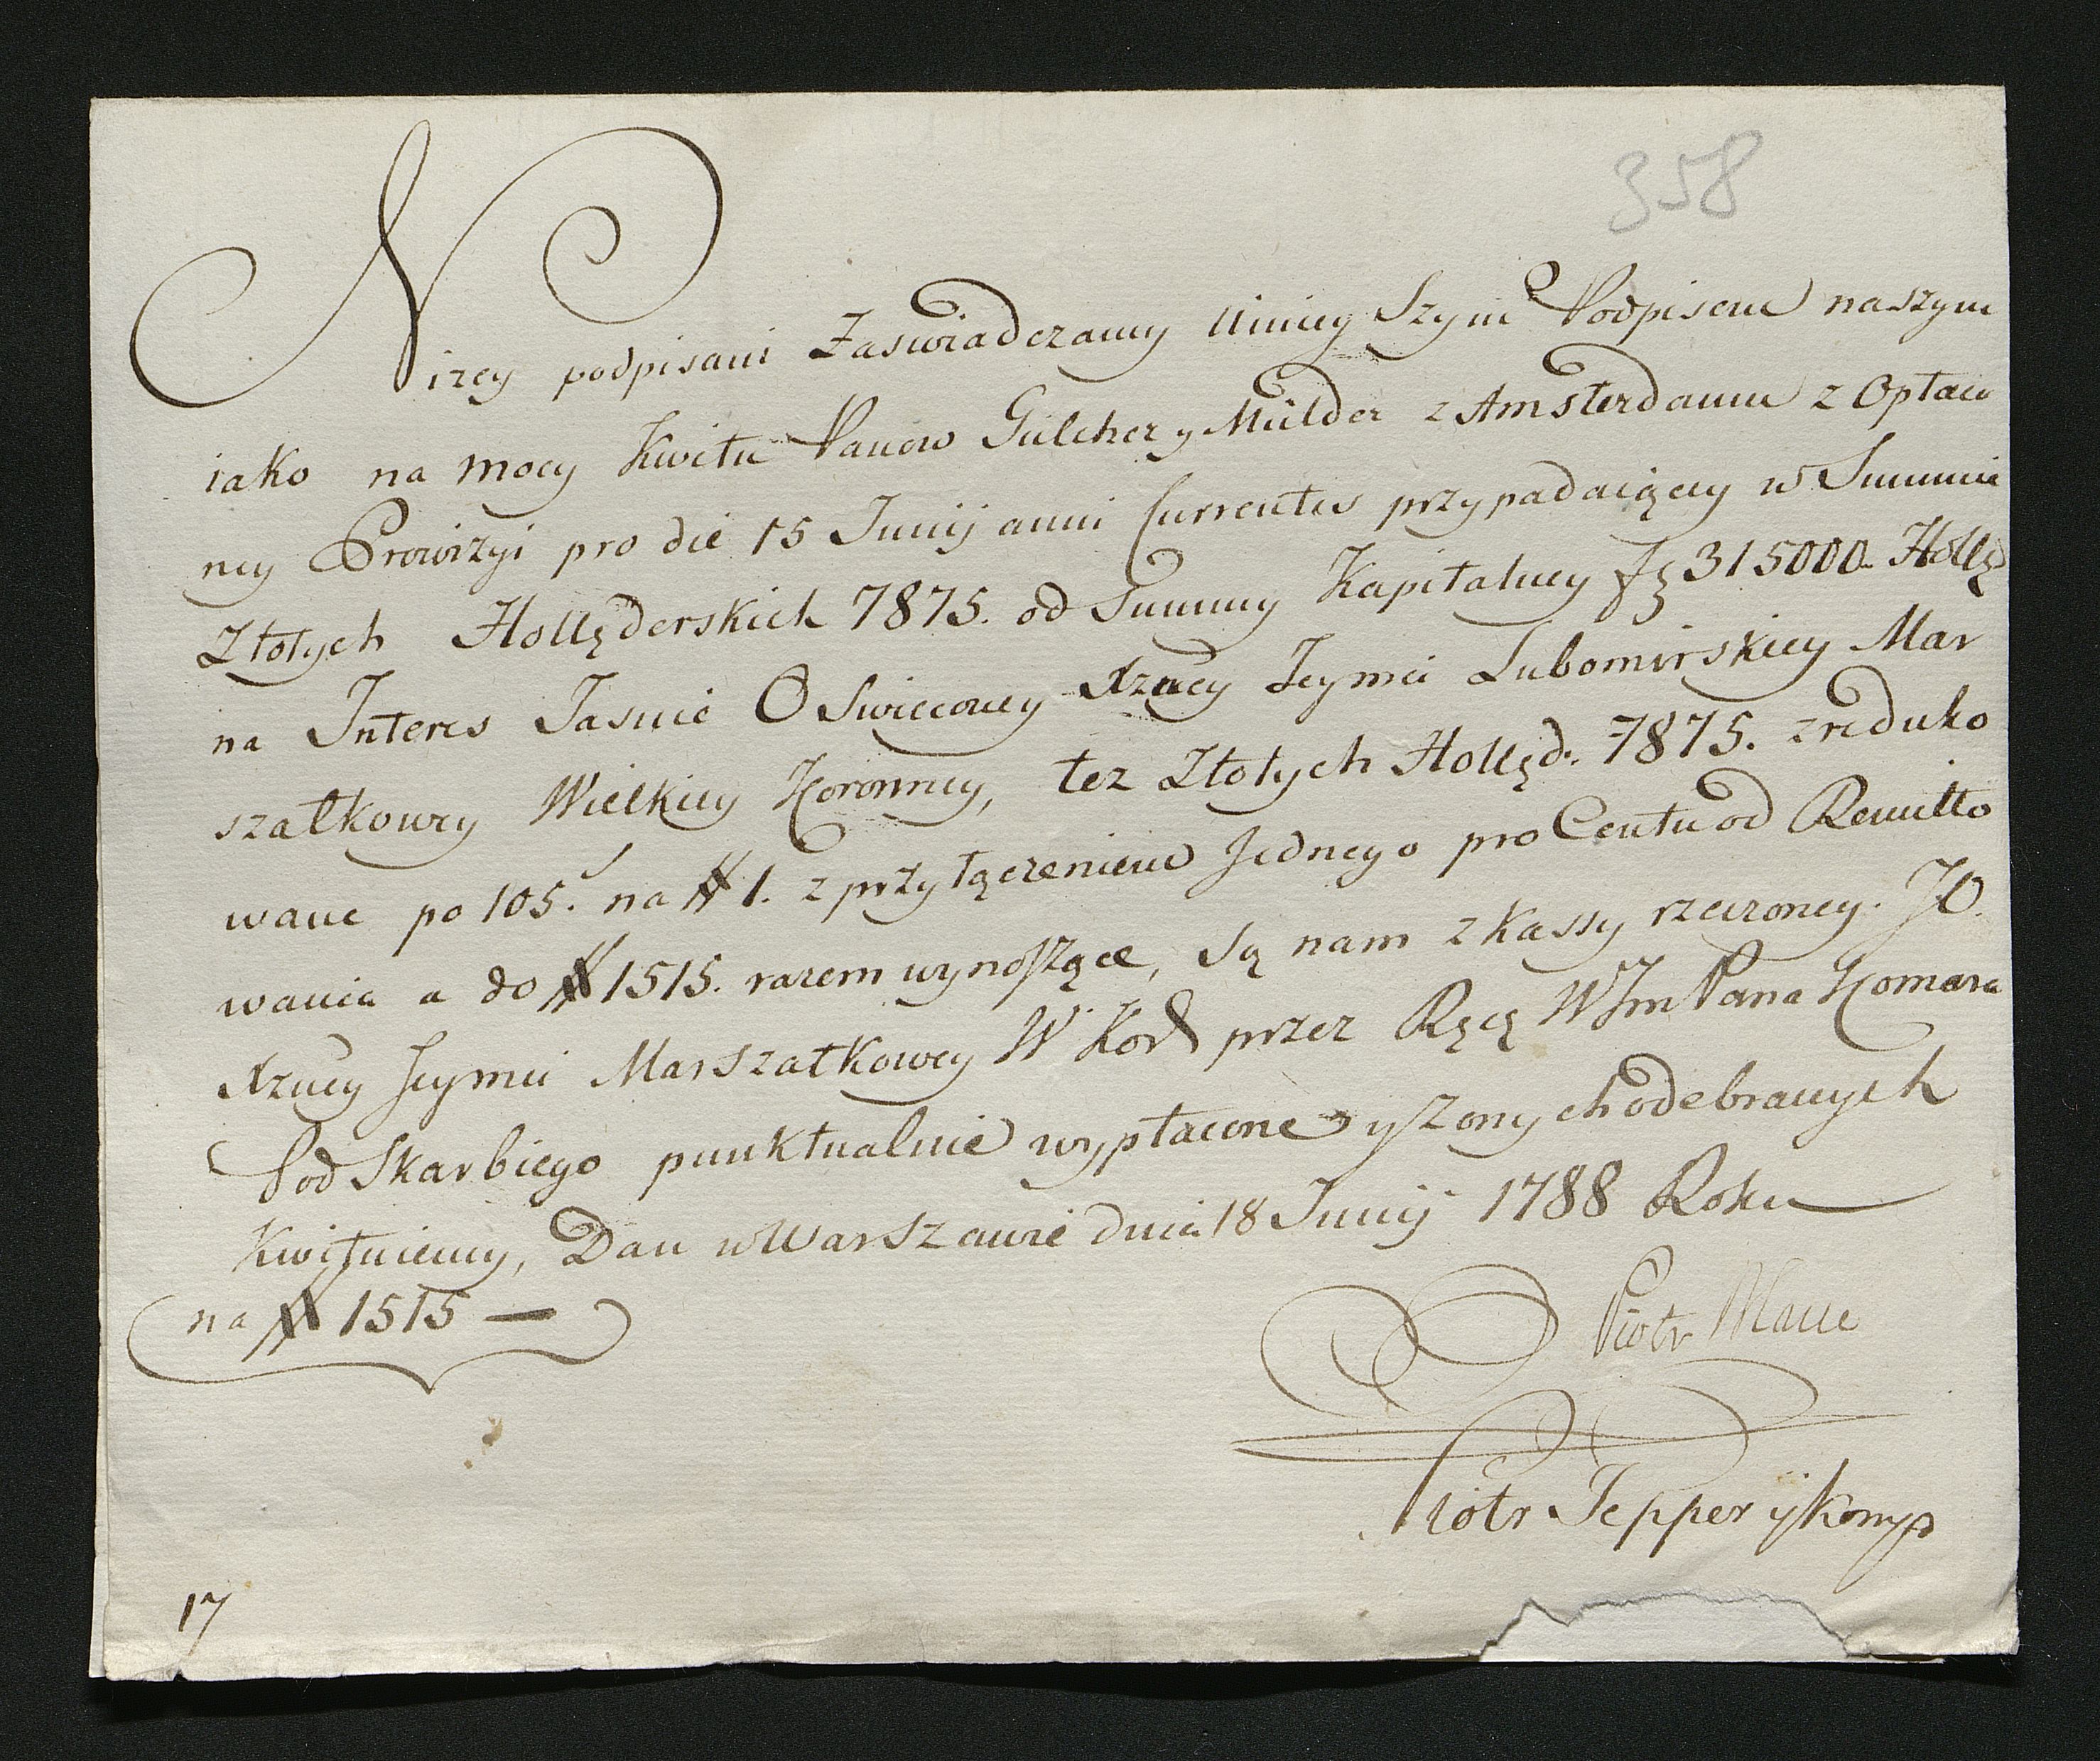 358
Nizey podpisani Zaswiadczamy Niniey Szym Podpisem naszym
iako na mocy Kwitu Panow Gulcher y Mülder z Amsterdamu z Opłaco
ney Prowizyi pro die 15 Junij anni Currentis przypadaiącey w Summie
Złotych Hollęderskich 7875. od Summy Kapitalney fz 315000. Hollę
na Interes Jasnie O Swieconey Xzney Jeymci Lubomirskiey Mar
szałkowey Wielkiey Koronney, tez Złotych Hollęd: 7875. zreduko
wane po 105. na # 1. z przyłączeniem Jednego pro Centu od Remitto
wania a do # 1515. razem wynoszące, są nam z Kassy rzeczoney. JO.
Xzney Jeymci Marszałkowey W Kor przez Ręcę WJm Pana Komara
Pod Skarbiego punktualnie wypłacone y Z onych odebranych
Kwituiemy, Dan w Warszawie dnia 18 Junij 1788 Roku
na # 1515 —
Piotr
Piotr Tepper ÿ Komp
17